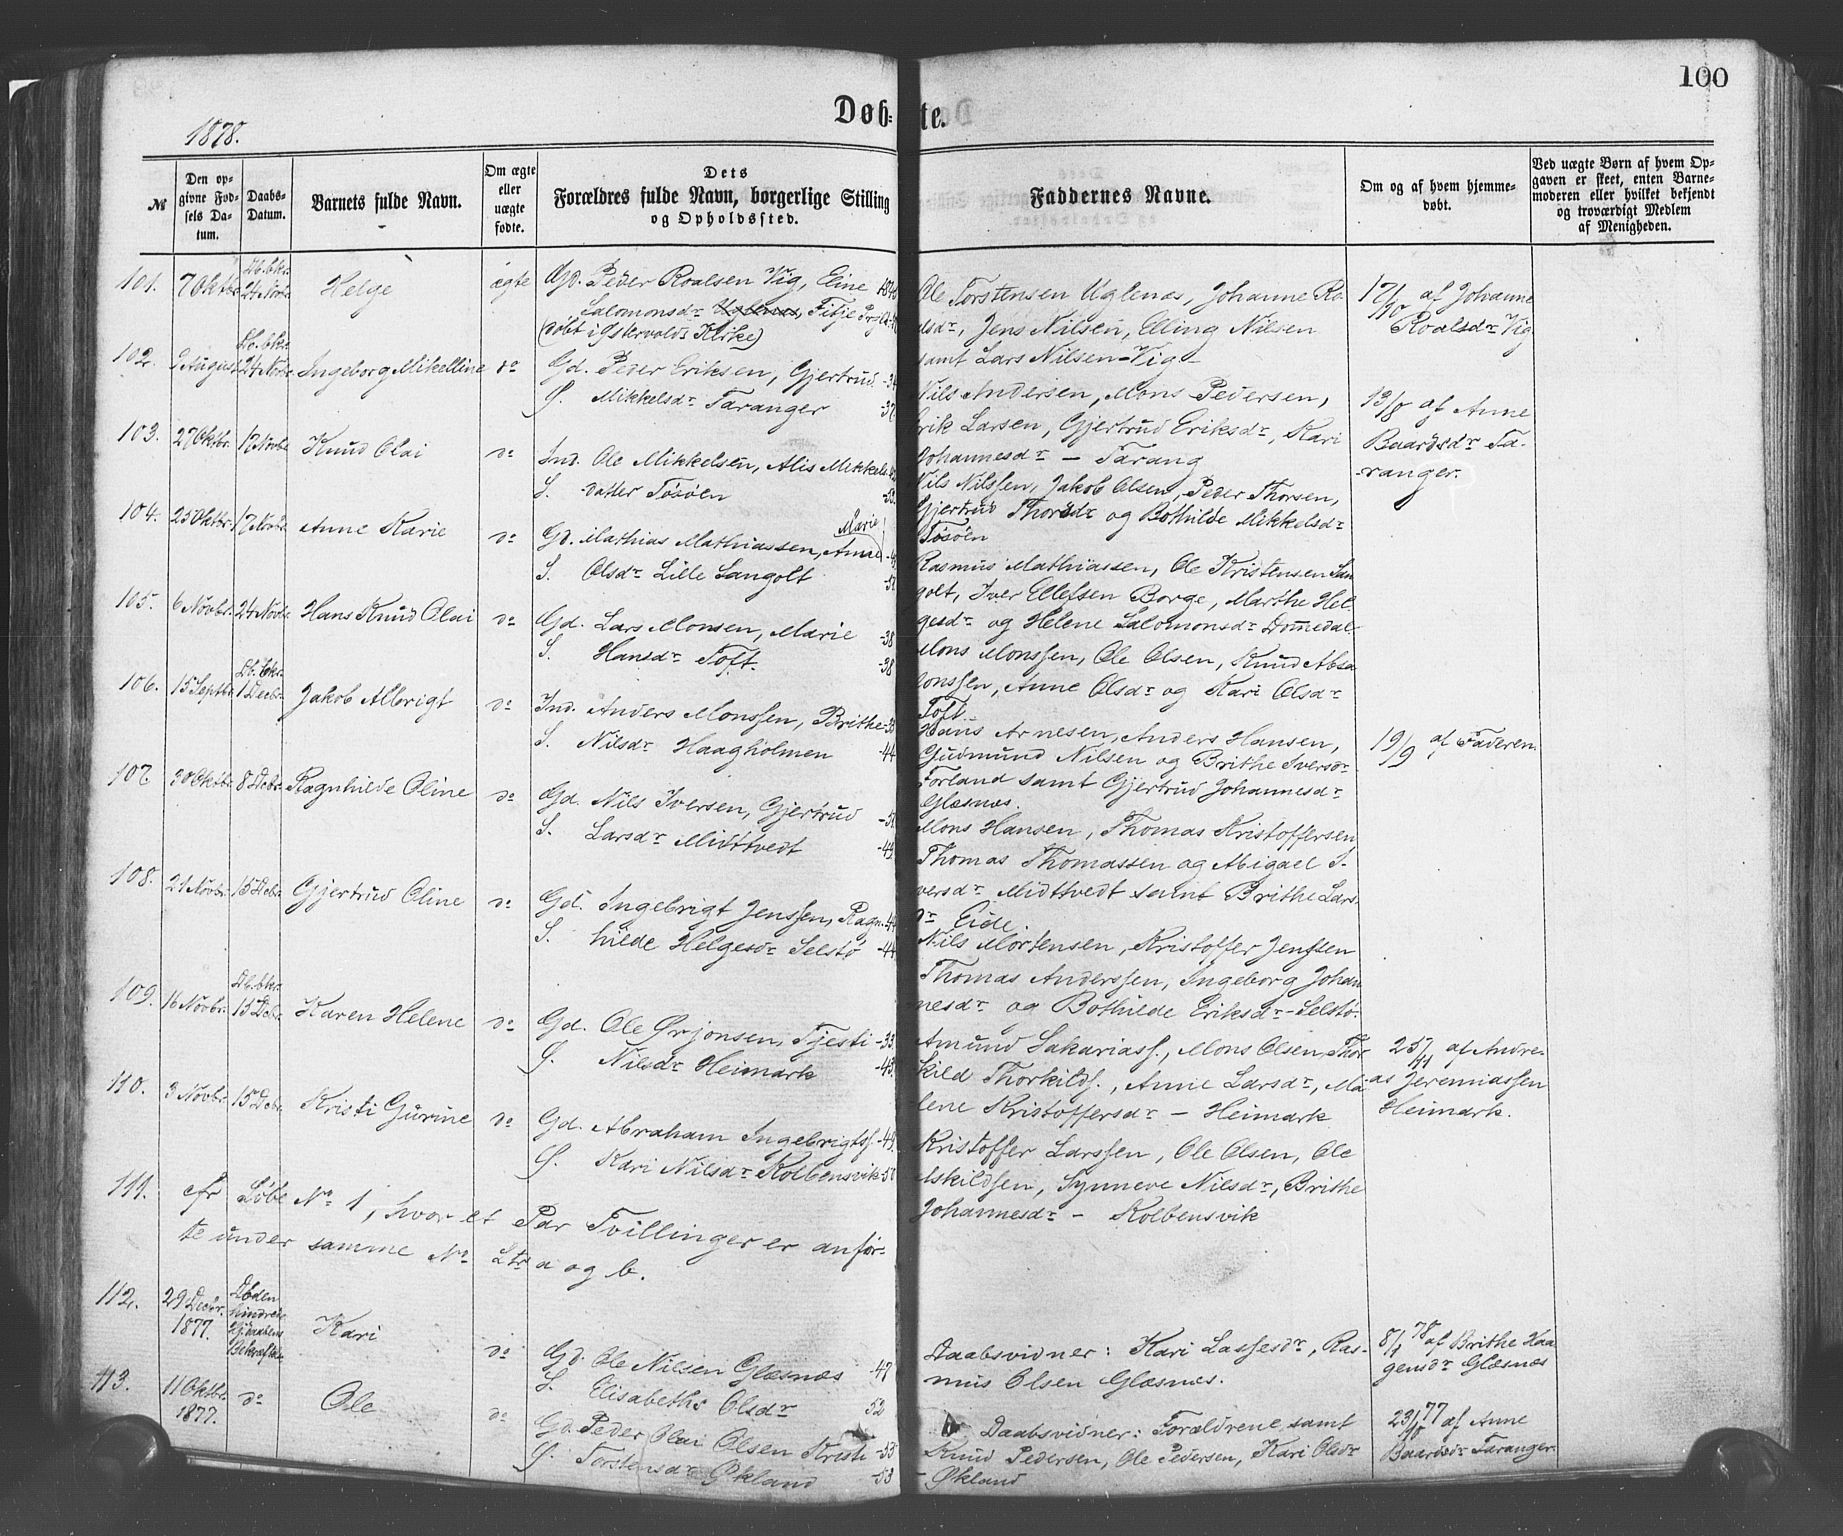 100
Døb-te.
1878.
№
Den opgivne Fødsels Datum.
Daabs-Datum.
Barnets fulde Navn.
Om ægte eller uægte fødte.
Dets Forældres fulde Navn, borgerlige Stilling og Opholdssted.
Faddernes Navne.
Om og af hvem hjemmedøbt.
Ved uægte Børn af hvem Opgaven er skeet, enten Barnemoderen eller hvilket bekjendt og troværdigt Medlem af Menigheden.
101. 7 Oktbr. Db. bkr. 24 Novbr. Helge ægte Gd. Peder Roalsen Vig, Eine
Salomonsdr Uglenæs, Fitje Prg
(døbt i Østervolds Kirke)
Ole Torstensen Uglenæs, Johanne Ro-
alsdr, Jens Nilsen, Elling Nilsen
samt Lars Nilsen - Vig
17/10 af Johanne
Roalsdr Vig
102. 9 August Db. bkr. 24 Novbr. Ingeborg Mikelline do Gd. Peder Eriksen, Gjertrud -34
S. Mikkelsdr Taranger -37
Nils Andersen, Mons Pedersen,
Erik Larsen, Gjertrud Eriksdr, Kari
Johannesdr - Tarang
13/8 af Anne
Baardsdr Ta-
ranger.
103. 27 Oktbr. 17 Novbr. Knud Olai do Ind. Ole Mikkelsen, Alis Mikkels
S. datter Tøsøen
Nils Nilssen, Jakob Olsen, Peder Thorsen,
Gjertrud Thorsdr og Bothilde Mikkelsdr
Tøsøen
104. 25 Oktbr. 17 Novbr. Anne Karie do Gd. Mathias Mathiassen, Anne Marie
S. Olsdr Lille Langolt -51
Rasmus Mathiassen, Ole Kristensen Lan
golt, Iver Ellefsen Borge, Marthe Hel
gesdr og Helene Salomonsdr Dommedal
105. 6 Novbr. 24 Novbr. Hans Knud Olai do Gd. Lars Monsen, Marie -38
S. Hansdr Toft. -38
Mons Monssen, Ole Olsen, Knud Absa
lonssen, Anne Olsdr og Kari Olsdr
Toft
106. 15 Septbr. Db. bkr. 1 Decbr. Jakob Albrigt do Ind. Anders Monssen, Brithe
S. Nilsdr Haagholmen -44
Hans Arnesen, Anders Hansen,
Gudmund Nilsen og Brithe Iversdr
Forland samt Gjertrud Johannesdr
Glæsnæs.
19/9 af Faderen.
107 30 Oktbr. 8 Debr. Ragnhilde Oline do Gd. Nils Iversen, Gjertrud -51
S. Larsdr Midttvedt -49
Mons Hansen, Thomas Kristoffersen
Thomas Thomassen og Abigael I-
versdr Midttvedt samt Brithe Lars-
dr Eide.
108. 21 Novbr. 15 Debr. Gjertrud Oline do Gd. Ingebrigt Jenssen, Ragn-
S. hilde Helgesdr Selstø -44
Nils Mortensen, Kristoffer Jenssen
Thomas Anderssen, Ingeborg Johan
nesdr og Bothilde Eriksdr - Selstø.
109. 16 Novbr. Db. bkr. 15 Debr. Karen Helene do Gd. Ole Ørjonsen, Tjesti -33
S. Nilsdr Heimark -43
Amund Sakariass., Mons Olsen, Thor
kild Thorkilds., Anne Larsdr, Ma
lene Kristoffersdr - Heimark
25/11 af Andre-
as Jeremiassen
Heimark.
110. 3 Novbr. 15 Debr. Kristi Gurine do Gd. Abraham Ingebrigtss. -49
S. Kari Nilsdr Kolbensvik
Kristoffer Larssen, Ole Olsen, Ole
Askildsen, Synneve Nilsdr, Brithe
Johannesdr - Kolbensvik
111. cfr Løbe No 1, hvor et Par Tvillinger er anfør-
te under samme No Ltr a og b.
112. 29 Decbr. 1877. Kari do Gd. Ole Nilsen Glæsnæs -47
S. Elisabethe Olsdr 52
Daabsvidner: Kari Lassesdr, Ras-
mus Olsen Glæsnæs.
8/1 78 af Brithe Haa
gensdr Glæsnæs
113. 11 Oktbr. 1877. do Ole do Gd. Peder Olai Olsen Kristi -55
S. Torstensdr Økland -53
Daabsvidner: Forældrene samt
Knud Pedersen, Ole Pedersen, Kari Olsdr
- Økland
23/10 77 af Anne
Baardsdr Taranger